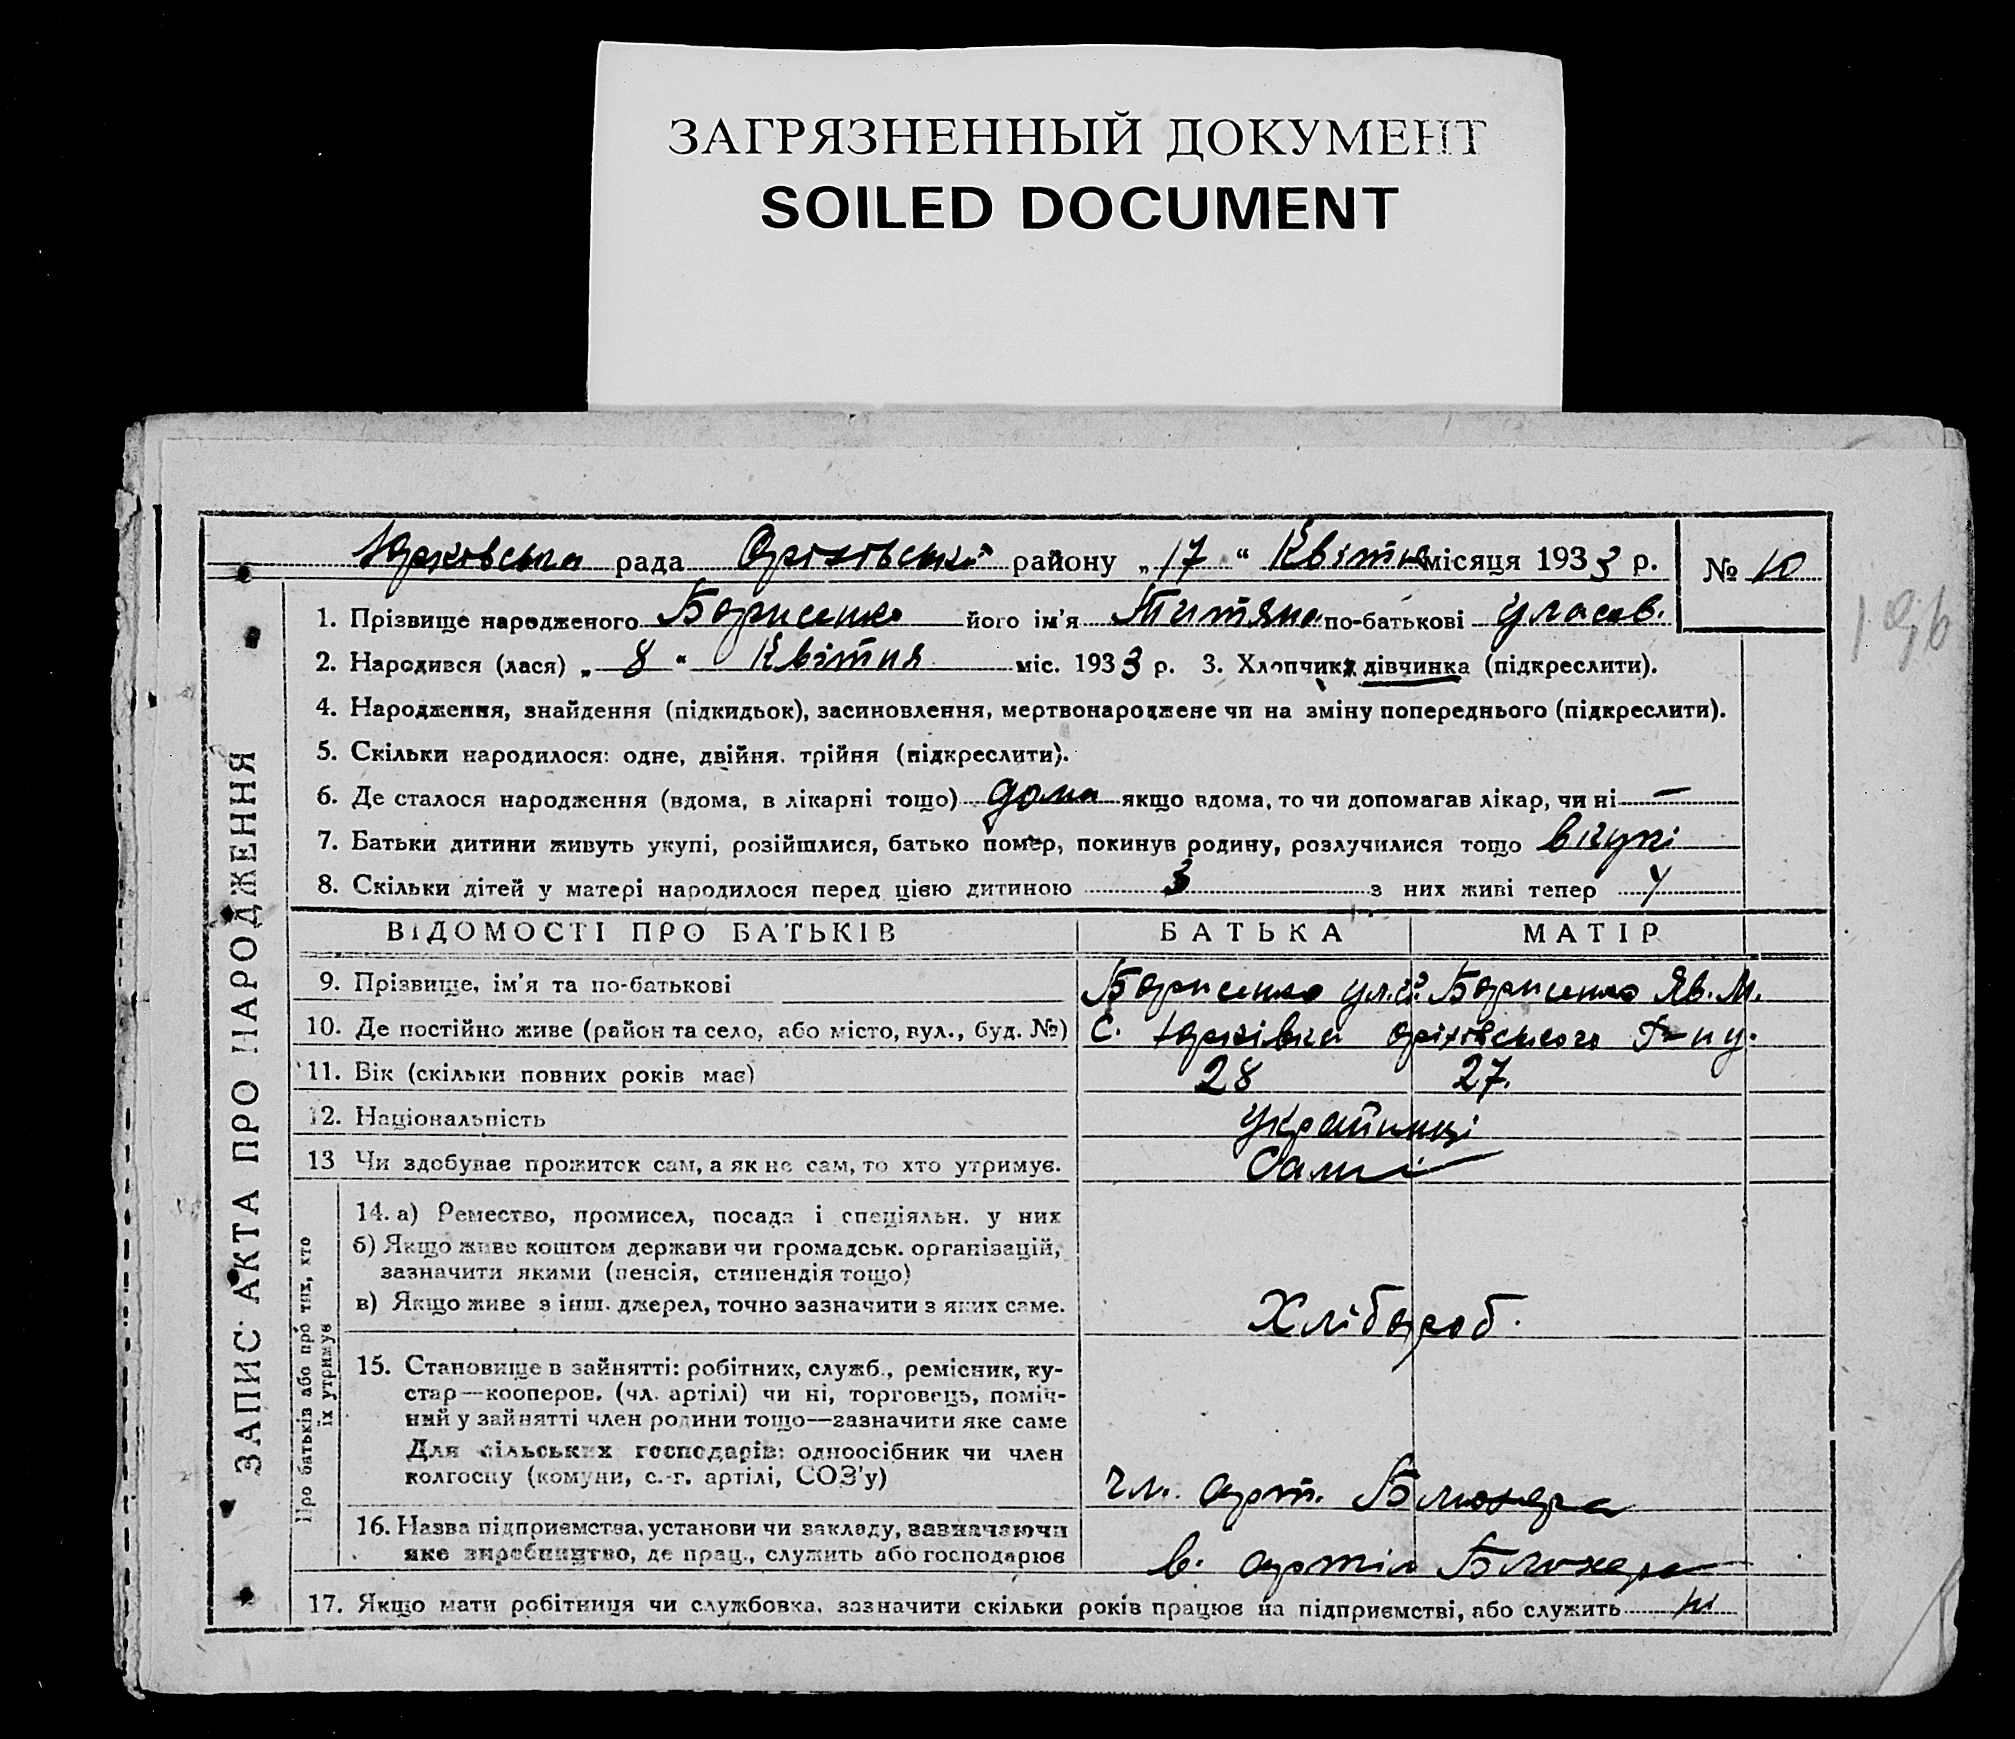 ЗАГРЯЗНЕННЫЙ ДОКУМЕНТ
SOILED DOCUMENT
Юрківська рада Оріхівський району „17“ Квітня місяця 1933 р. № 10
196
ЗАПИС АКТА ПРО НАРОДЖЕННЯ
1. Прізвище народженого Борисенко його ім'я Титяна по-батькові Уласов.
2. Народився (лася) „8“ Квітня міс. 1933 р. 3. Хлопчик, дівчинка (підкреслити).
4. Народження, знайдення (підкидьок), засиновлення, мертвонароджене чи на зміну попереднього (підкреслити).
5. Скільки народилося: одне, двійня, трійня (підкреслити).
6. Де сталося народження (вдома, в лікарні тощо) дома якщо вдома, то чи допомагав лікар, чи ні —
7. Батьки дитини живуть укупі, розійшлися, батько помер, покинув родину, розлучилися тощо вкупі
8. Скільки дітей у матері народилося перед цією дитиною 3 з них живі тепер
ВІДОМОСТІ ПРО БАТЬКІВ БАТЬКА МАТІР
9. Прізвище, ім'я та по-батькові Борисенко Ул. Борисенко Яв. М.
10. Де постійно живе (район та село, або місто, вул., буд. №) С. Юрківка Оріхівського
11. Вік (скільки повних років має) 28 27.
12. Національність Українці
13 Чи здобуває прожиток сам, а як не сам, то хто утримує. Самі
Про батьків або про тих, хто
їх утримує
14. а) Ремество, промисел, посада і спеціяльн. у них
б) Якщо живе коштом держави чи громадськ. організацій,
зазначити якими (пенсія, стипендія тощо)
в) Якщо живе з інш. джерел, точно зазначити з яких саме. Хлібороб.
15. Становище в зайнятті: робітник, служб., ремісник, ку-
стар—кооперов, (чл. артілі) чи ні, торговець, поміч-
ний у зайнятті член родини тощо—зазначити яке саме
Для сільських господарів: одноосібник чи член
колгоспу (комуни, с.-г. артілі, СОЗ'у) чл. арт. Блюхера
16. Назва підприємства, установи чи закладу, зазначаючи
яке виробництво, де прац., служить або господарює в. артіл Блюхера
17. Якщо мати робітниця чи службовка, зазначити скільки років працює на підприємстві, або служить ні